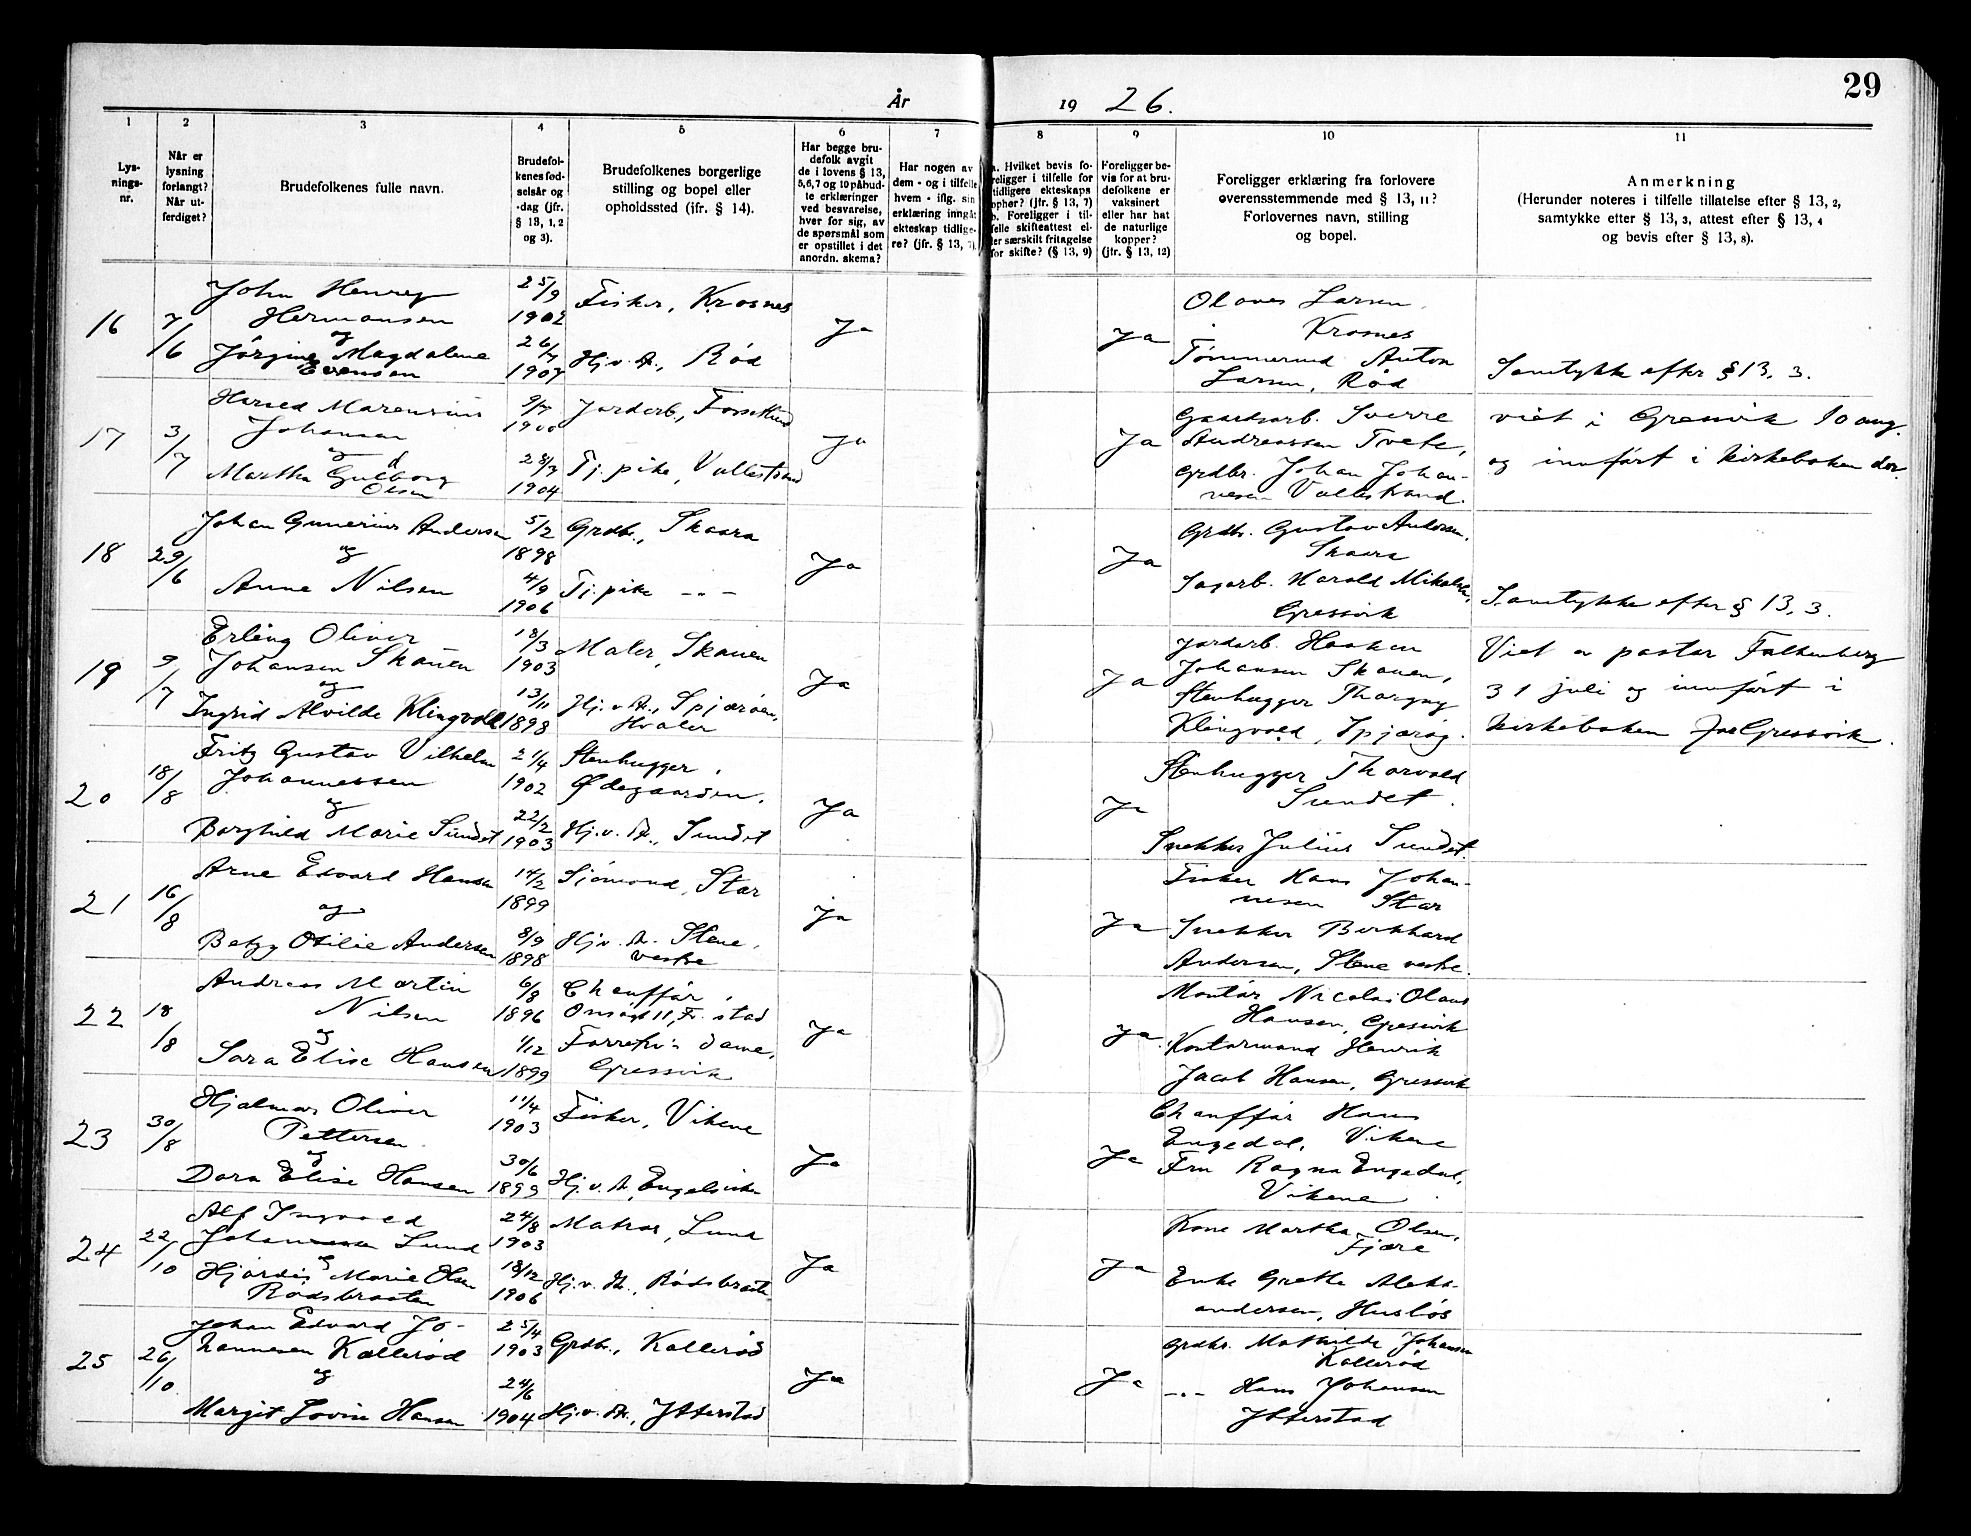 29
År 1926.
1 2 3 4 5 6 7 8 9 10 11
Lys-
nings-
nr.
Når er
lysning
forlangt?
Når ut-
ferdiget?
Brudefolkenes fulle navn.
Brudefol-
kenes fød-
selsår og
-dag (jfr.
§ 13, 1, 2
og 3).
Brudefolkenes borgerlige
stilling og bopel eller
opholdssted (jfr. § 14).
Har begge bru-
defolk avgit
de i lovens § 13,
5, 6, 7 og 10 påbud-
te erklæringer
ved besvarelse,
hver for sig, av
de spørsmål som
er opstillet i det
anordn. skema?
Har nogen av
dem - og i tilfelle
hvem - iflg. sin
erklæring inngått
ekteskap tidlige-
re? (jfr. § 13, 7).
a. Hvilket bevis fo-
religger i tilfelle for
tidligere ekteskaps
ophør? (jfr. § 13, 7)
b. Foreligger i til-
felle skifteattest el-
ler særskilt fritagelse
for skifte? (§ 13, 9)
Foreligger be-
vis for at bru-
defolkene er
vaksinert
eller har hat
de naturlige
kopper?
(jfr. § 13, 12)
Foreligger erklæring fra forlovere
overensstemmende med § 13, 11?
Forlovernes navn, stilling
og bopel.
Anmerkning
(Herunder noteres i tilfelle tillatelse efter § 13, 2,
samtykke etter § 13, 3, attest efter § 13, 4
og bevis efter § 13, 8).
16 7/6
John Henry
Hermansen
og
Jørgine Magdalene
Evensen
25/9
1902
26/7
1907
Fisker, Krosnes
Hj.v.A., Rød
Ja
Ja
Olaves Larsen
Krosnes
Tømmermd Anton
Larsen, Rød
Samtykke efter § 13, 3.
17 3/7
Harald Marensius
Johansen
og
Martha Gulborg
Olsen
9/7
1900
28/7
1904
Jordarb.,
Tj.pike, Vallestrand
Ja
Ja
Gaardsarb. Sverre
Andreassen Tvete,
Grdbr. Johan Johan-
nesen Vallestrand.
viet i Gressvik 10 aug.
og innført i kirkeboken der.
18 29/6
Johan Gunerius Andersen
og
Anne Nilsen
5/2
1898
4/9
1906
Grdbr., Skaara
Tj.pike -"-
Ja
Ja
Grdbr. Gustav Andersen,
Skaara
Sagarb. Harald Mikalsen,
Gressvik
Samtykke efter § 13, 3.
19 9/7
Erling Oliver
Johansen Skauen
og
Ingrid Alvilde Klingvoll
18/3
1903
13/11
1898
Maler, Skauen
Hj.v.A., Spjærøen,
Hvaler
Ja
Ja
Jordarb. Haaken
Johansen Skauen,
Stenhugger Thorgny
Klingvold, Spjærøy.
Viet av pastor Falkenberg
31 juli og innført i
kirkeboken for Gressvik.
20 18/8
Fritz Gustav Vilhelm
Johannessen
og
Borghild Marie Sundet
21/4
1902
22/2
1903
Stenhugger,
Ødegaarden.
Hj.v.A., Sundet
Ja
Ja
Stenhugger Thorvald
Sundet.
Snekker Julius Sundet.
21 16/8
Arne Edvard Hansen
og
Betzy Otilie Andersen
14/2
1899
8/9
1898
Sjømand, Stær
Hj.v.A. Slene,
vestre
Ja
Ja
Fisker Hans Johan-
nesen Stær
Snekker Berkhard
Andersen, Slene vestre.
22 18/8
Andreas Martin
Nilsen
og
Sara Elise Hansen
6/8
1896
1/12
1899
Chauffør,
Onsøgt 11, Fr.stad
Forretn.-dame,
Gressvik
Ja
Ja
Montør Nicolai Olaus
Hansen, Gressvik
Kontormand Henrik
Jacob Hansen, Gressvik
23 30/8
Hjalmar Oliver
Pettersen
og
Dora Elise Hansen
11/4
1903
30/6
1899
Fisker, Vikene
Hj.v.A., Engelsviken
Ja
Ja
Chauffør Hans
Engedal, Vikene
Fru Ragna Engedal,
Vikene
24 22/10
Alf Ingvald
Johannessen Lund
og
Hjørdis Marie Olsen
Rødsbraaten
24/8
1903
18/12
1906
Matros, Lund
Hj.v.A., Rødsbraaten
Ja
Ja
Kone Martha Olsen,
Fjære
Enke Grethe Aleks-
andersen, Husløs
25 26/10
Johan Edvard Jo-
hannesen Kallerød
og
Margit Lovise Hansen
25/4
1903
24/6
1904
Grdbr., Kallerød
Hj.v.A., Ytterstad
Ja
Ja
Grdbr. Mathilde Johansen
Kallerød
-"- Hans Johansen
Ytterstad